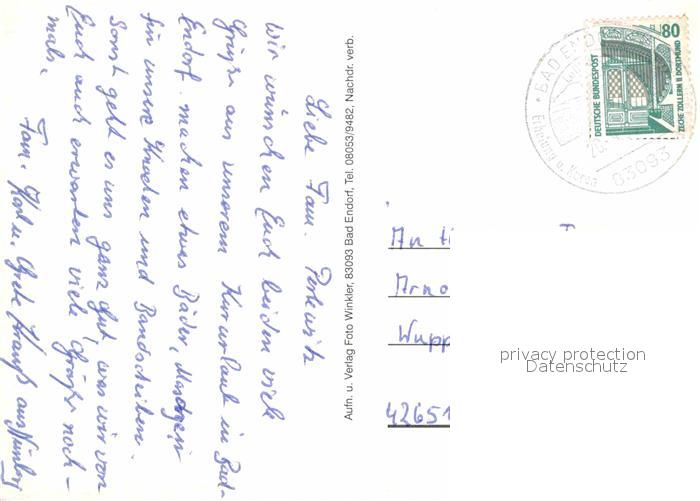 Liebe Fam. Perkusitz
Wir wünschen Euch beiden viele
Grüße aus unserem Kururlaub in Bad-
Endorf. machen etwas Bäder, Massagen
für unsere Knochen und Bandscheiben.
Sonst geht es uns ganz gut, was wir von
Euch auch erwarten viele Grüße noch-
mals.
Fam. Karl u. Grete Krauß aus Nürnberg
Aufn. u. Verlag Foto Winkler, 83093 Bad Endorf, Tel. 08053/9482, Nachdr. verb.
80
DEUTSCHE BUNDESPOST
ZECHE ZOLLERN II DORTMUND
BAD ENDO
Erholung u. Kuren
83093
An
Arno
Wupp
42651
privacy protection
Datenschutz